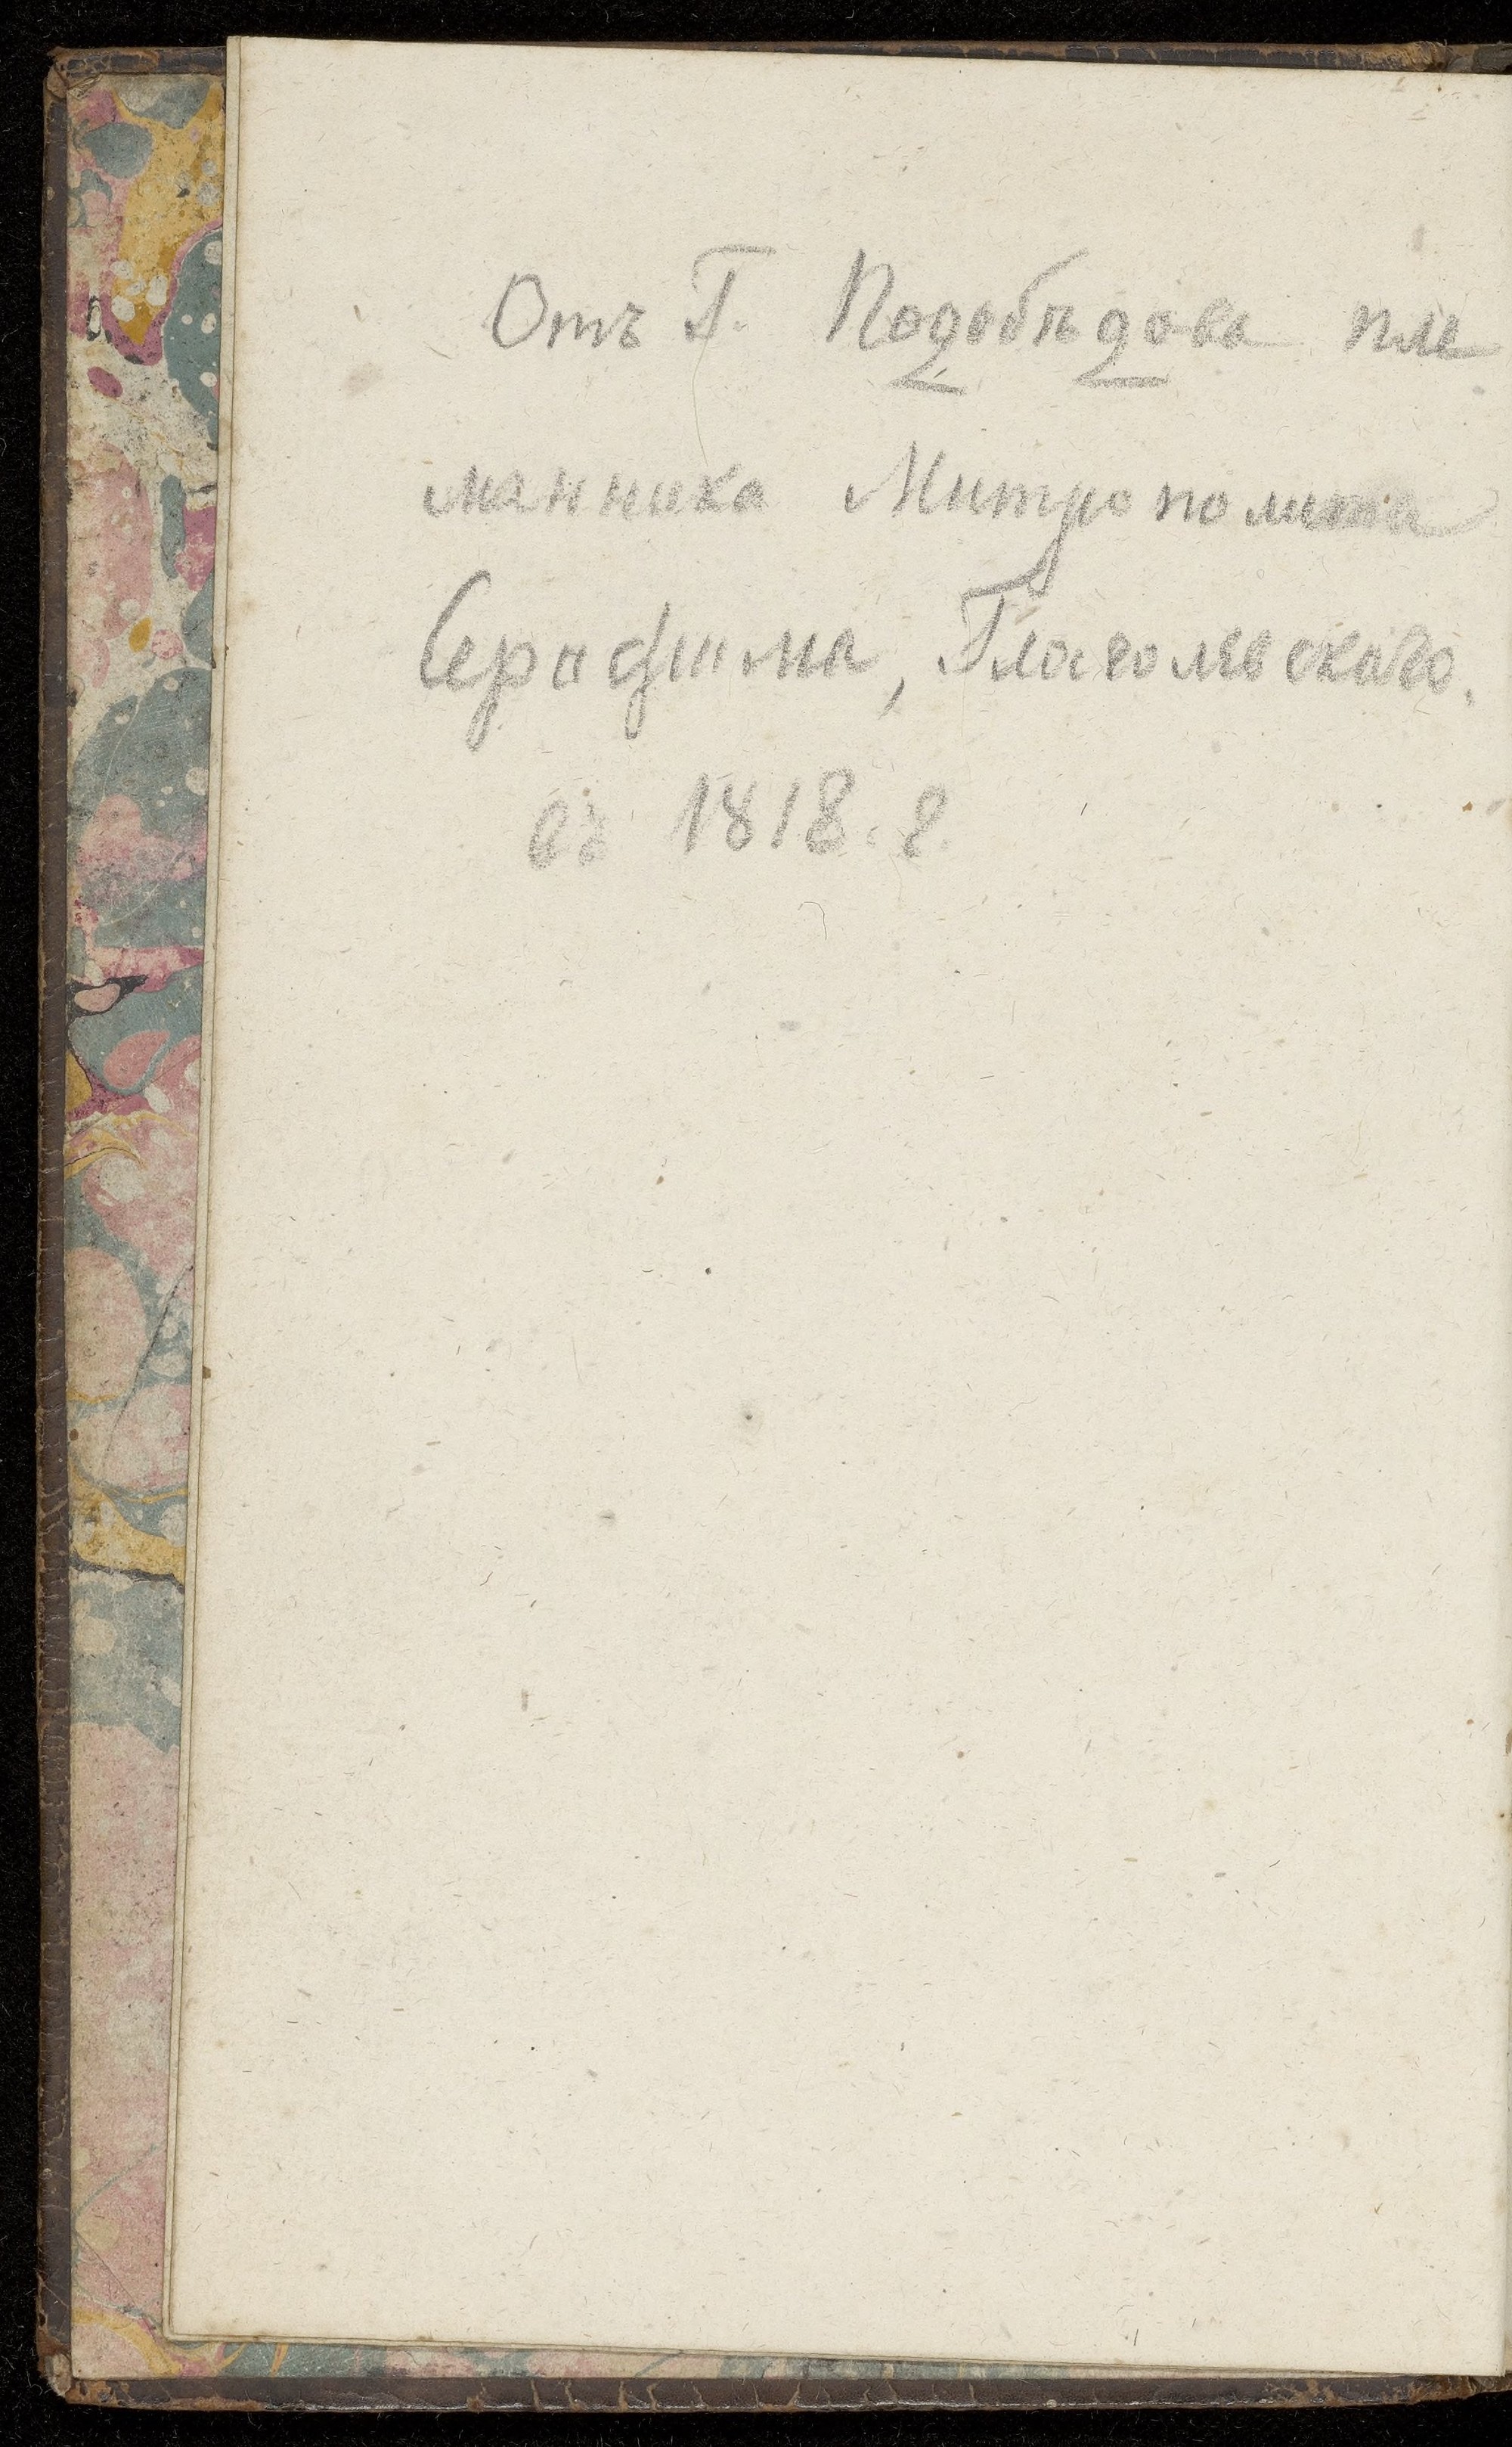 Отъ Г. Подобѣдова пле
мянника Митрополита
Серафима, Глаголевскаго.
въ 1818. г.